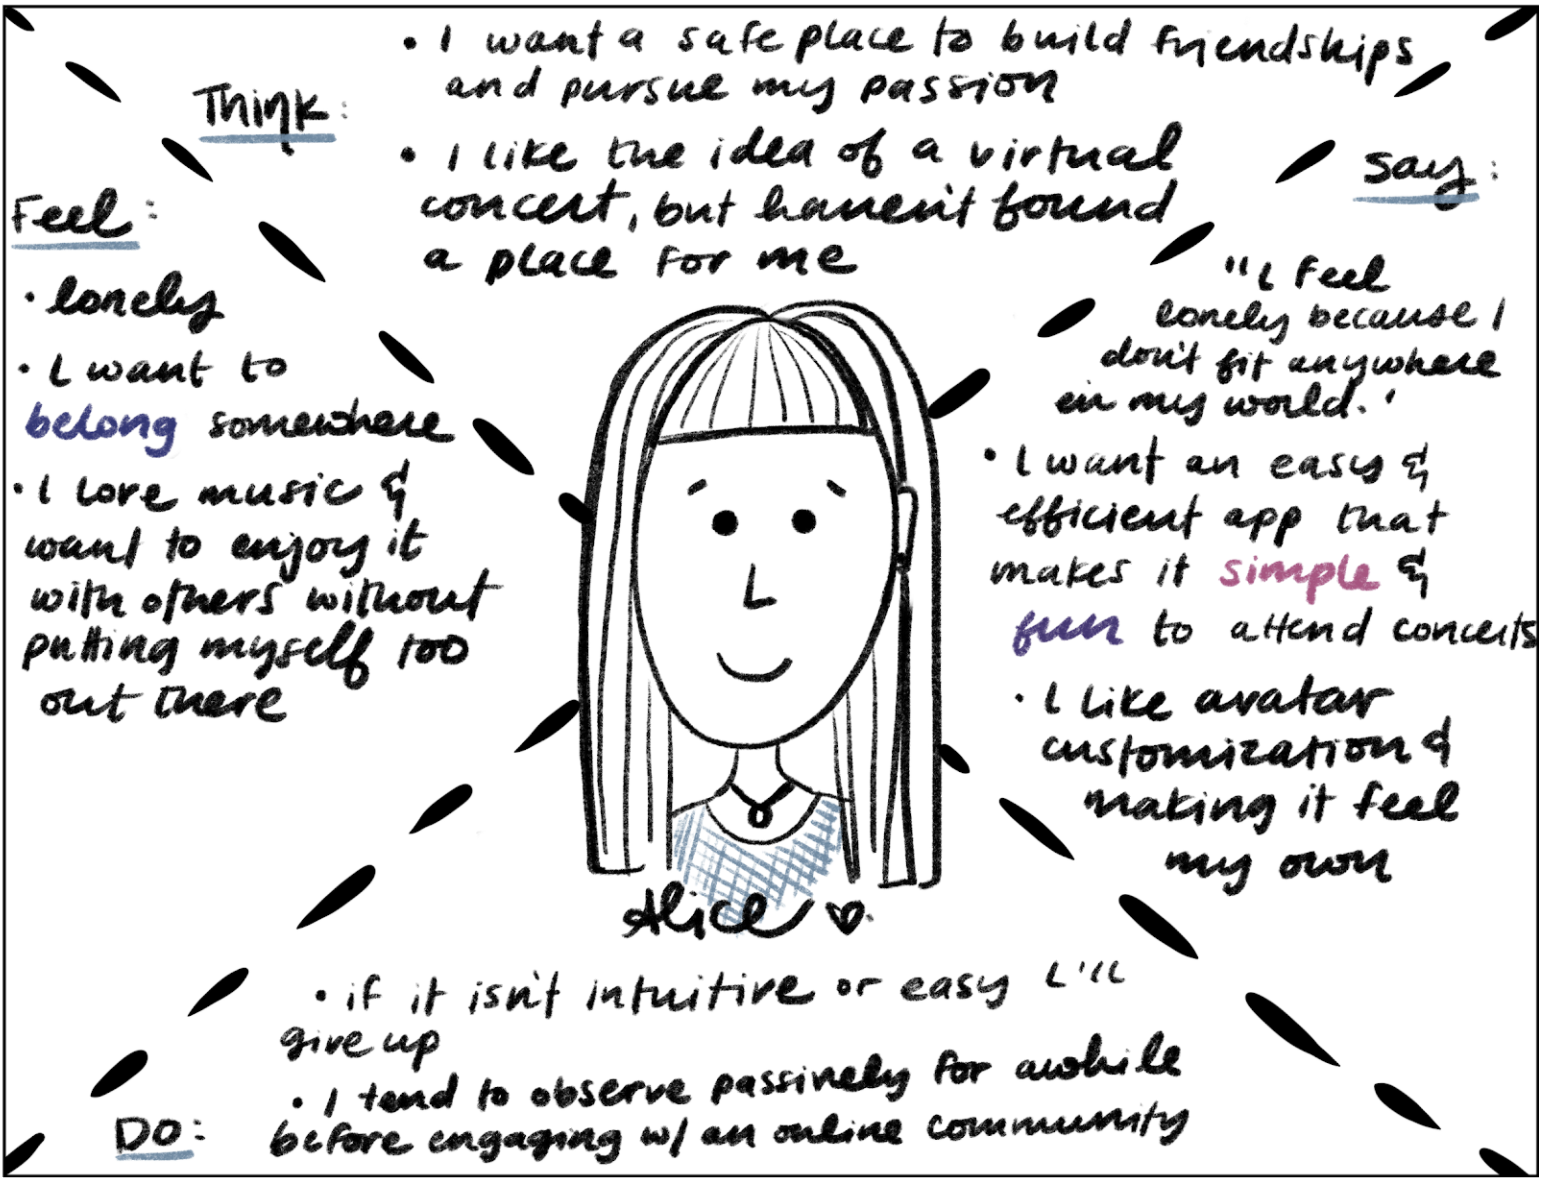 Think:
• I want a safe place to build friendships
and pursue my passion
• I like the idea of a virtual
concert, but haven't found
a place for me
Feel:
• lonely
• I want to
belong somewhere
• I love music &
want to enjoy it
with others without
putting myself too
out there
Say:
"I feel
lonely because I
don't fit anywhere
in my world.'
• I want an easy &
efficient app that
makes it simple &
fun to attend concerts
• I like avatar
customization &
making it feel
my own
Alice
• if it isn't intuitive or easy I'll
give up
• I tend to observe passively for awhile
before engaging w/ an online community
Do: